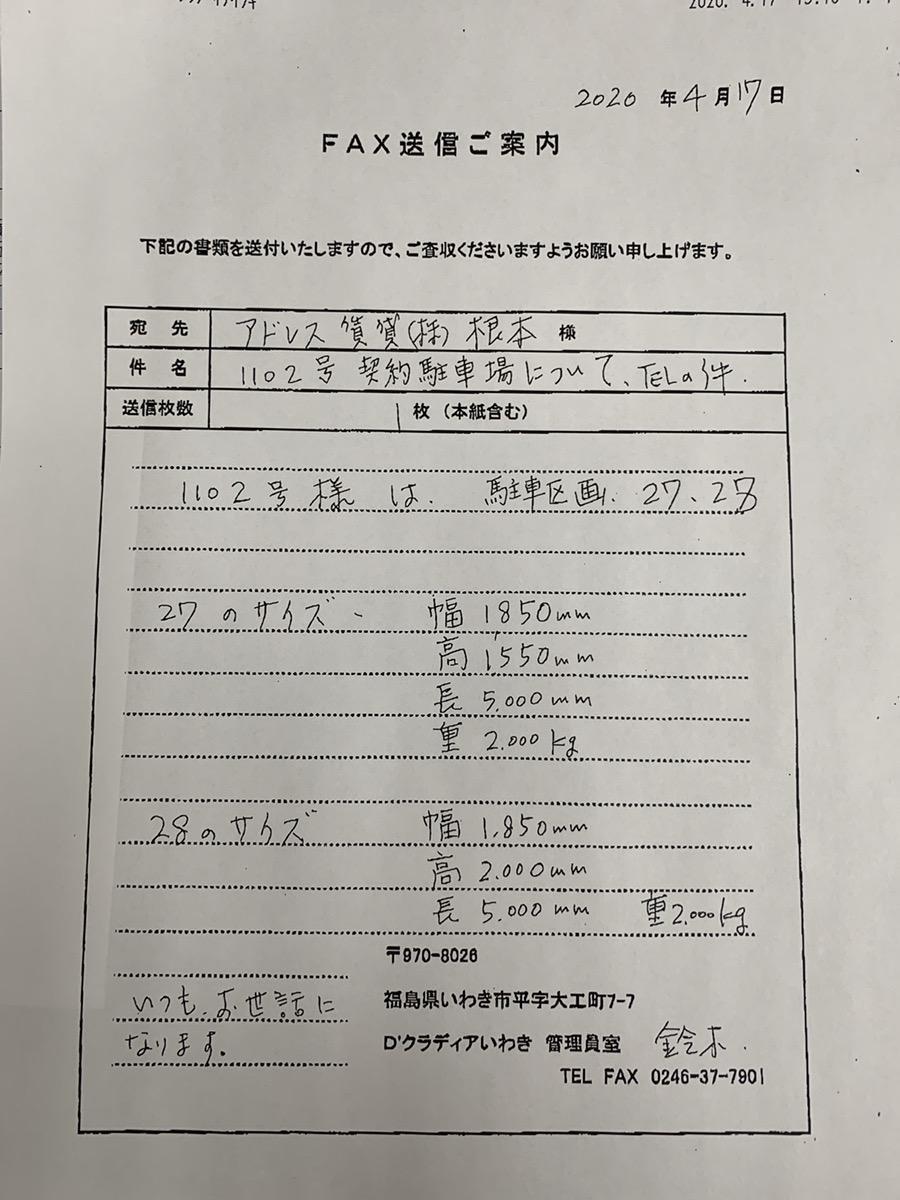 2020年4月17日
FAX送信ご案内
下記の書類を送付いたしますので、ご査収くださいますようお願い申し上げます。
宛先 アドレス賃貸(株)根本 様
件名 1102号契約駐車場について、TELの件.
送信枚数 1枚(本紙含む)
1102号様は. 駐車区画. 27、28
27のサイズ、 幅 1850mm
高 1,550mm
長 5.000mm
重 2.000kg
28のサイズ 幅 1.850mm
高 2.000mm
長 5.000mm 重2.000kg
〒970-8026
いつも.お世話に 福島県いわき市平字大工町7-7
なります. D'クラディアいわき 管理員室 鈴木.
TEL FAX 0246-37-7901